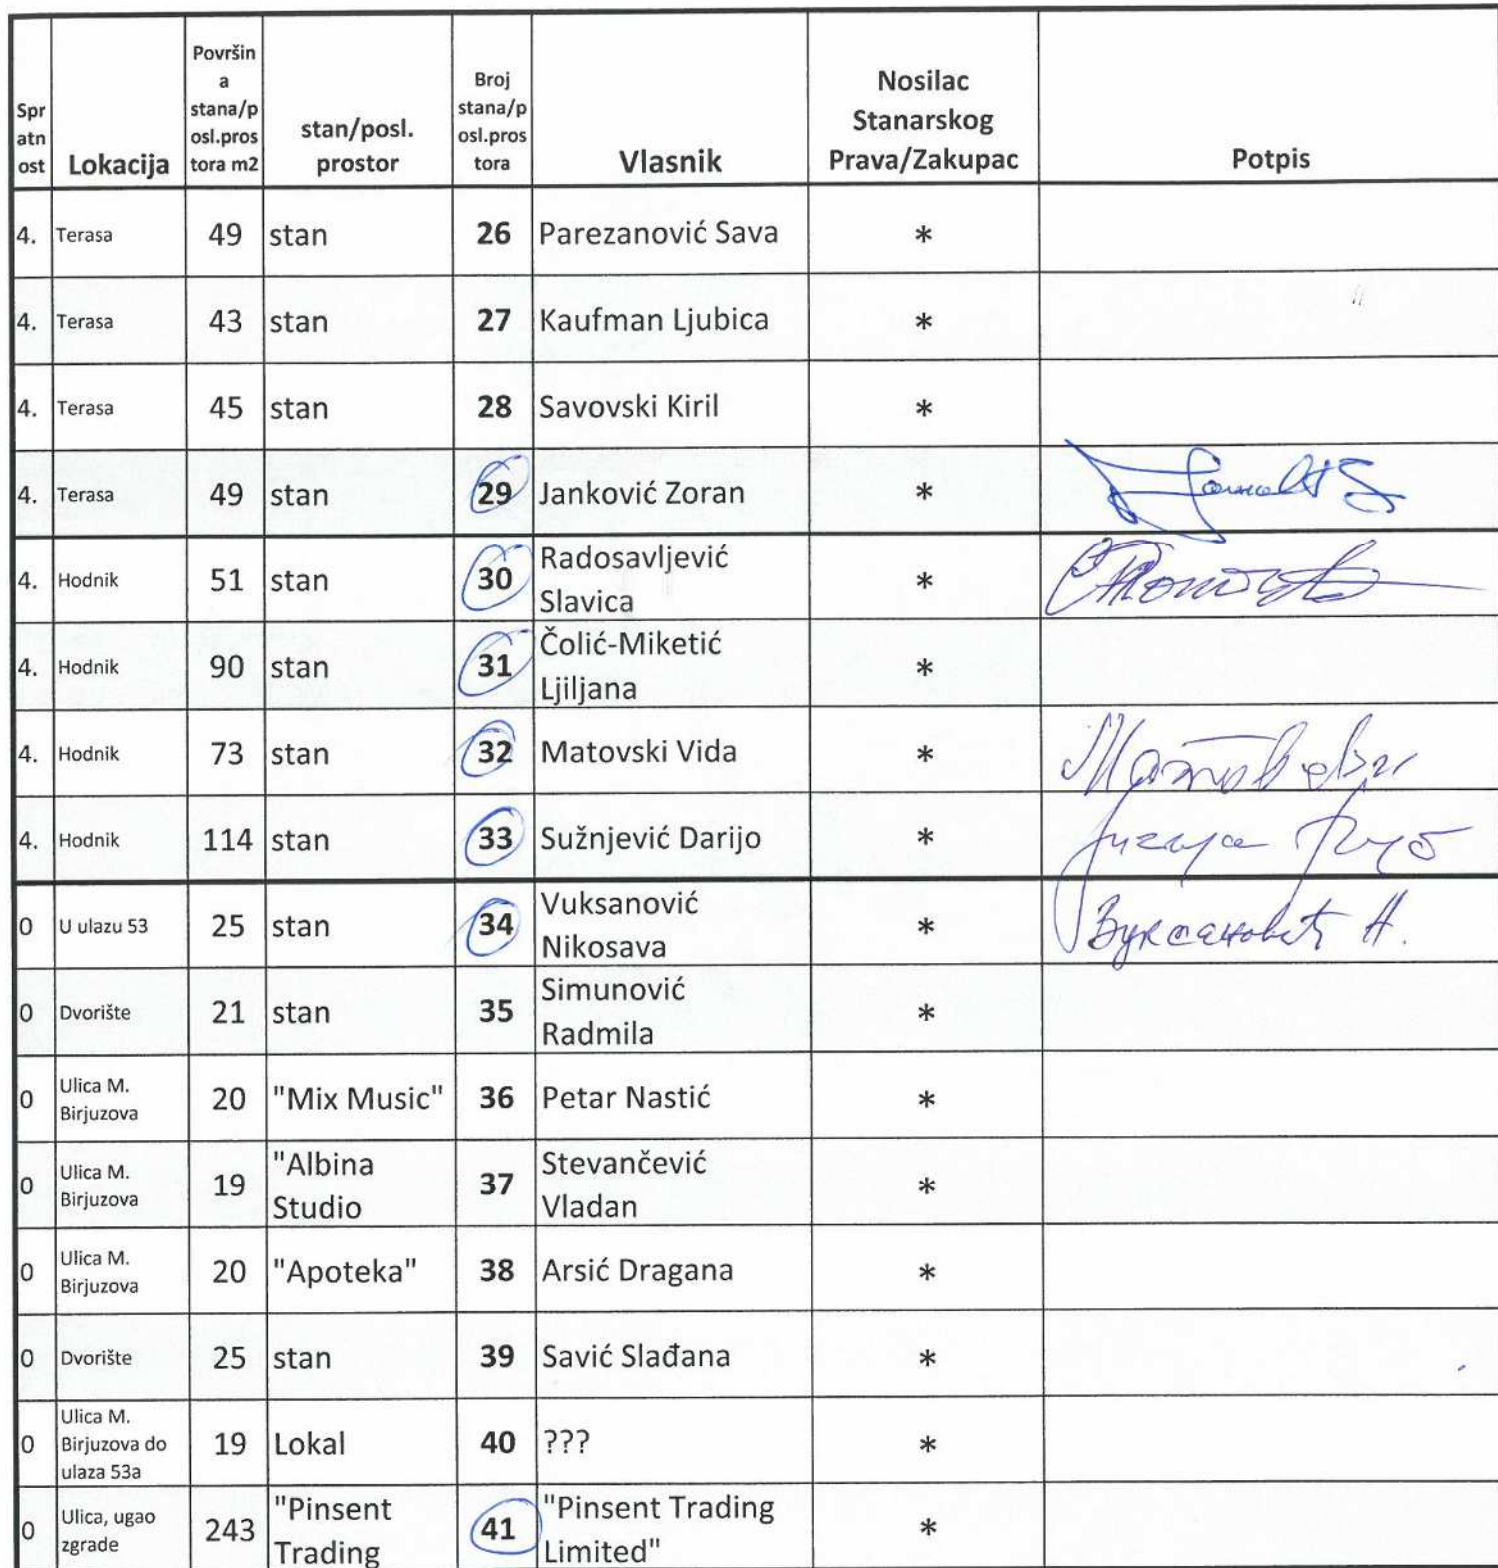 Spr
atn
ost
Lokacija
Površin
a
stana/p
osl.pros
tora m2
stan/posl.
prostor
Broj
stana/p
osl.pros
tora
Vlasnik
Nosilac
Stanarskog
Prava/Zakupac
Potpis
4. Terasa 49 stan 26 Parezanović Sava *
4. Terasa 43 stan 27 Kaufman Ljubica *
4. Terasa 45 stan 28 Savovski Kiril *
4. Terasa 49 stan 29 Janković Zoran *
4. Hodnik 51 stan 30 Radosavljević
Slavica *
4. Hodnik 90 stan 31 Čolić-Miketić
Ljiljana *
4. Hodnik 73 stan 32 Matovski Vida *
4. Hodnik 114 stan 33 Sužnjević Darijo *
0 U ulazu 53 25 stan 34 Vuksanović
Nikosava * Вуксановић Н.
0 Dvorište 21 stan 35 Simunović
Radmila *
0 Ulica M.
Birjuzova 20 "Mix Music" 36 Petar Nastić *
0 Ulica M.
Birjuzova 19 "Albina
Studio 37 Stevančević
Vladan *
0 Ulica M.
Birjuzova 20 "Apoteka" 38 Arsić Dragana *
0 Dvorište 25 stan 39 Savić Slađana *
0 Ulica M.
Birjuzova do
ulaza 53a 19 Lokal 40 ??? *
0 Ulica, ugao
zgrade 243 "Pinsent
Trading 41 "Pinsent Trading
Limited" *